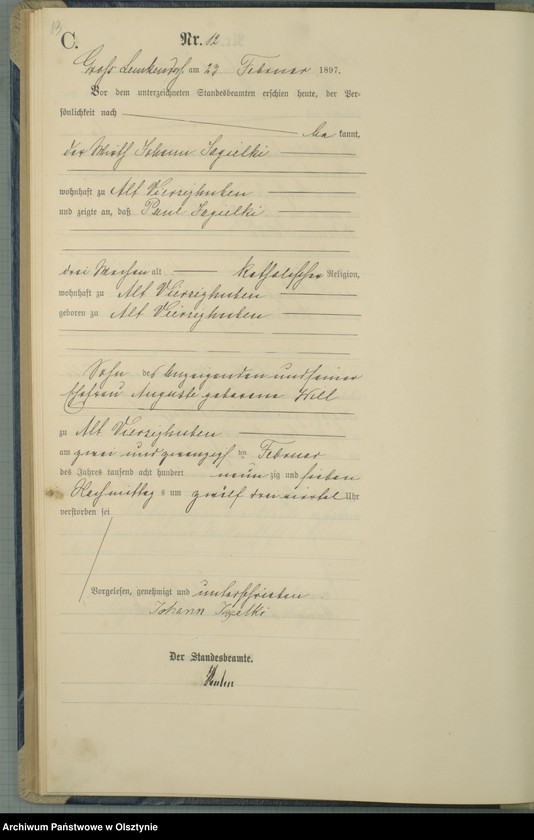 13
C.
Nr. 12
Gross Lemkendorf am 23 Februar 1897.
Vor dem unterzeichneten Standesbeamten erschien heute, der Per-
sönlichkeit nach
be kannt,
der Wirth Johann
wohnhaft zu Alt Vierzighuben
und zeigte an, daß Paul
drei Wochen alt katholischer Religion,
wohnhaft zu Alt Vierzighuben
geboren zu Alt Vierzighuben
Sohn des Anzeigenden und seiner
Ehefrau Auguste geborene
zu Alt Vierzighuben
am zwei und zwanzigst den Februar
des Jahres tausend acht hundert neun zig und sieben
Nachmittag s um zwölf drei viertel Uhr
verstorben sei
Vorgelesen, genehmigt und unterschrieben
Johann
Der Standesbeamte.
Archiwum Państwowe w Olsztynie